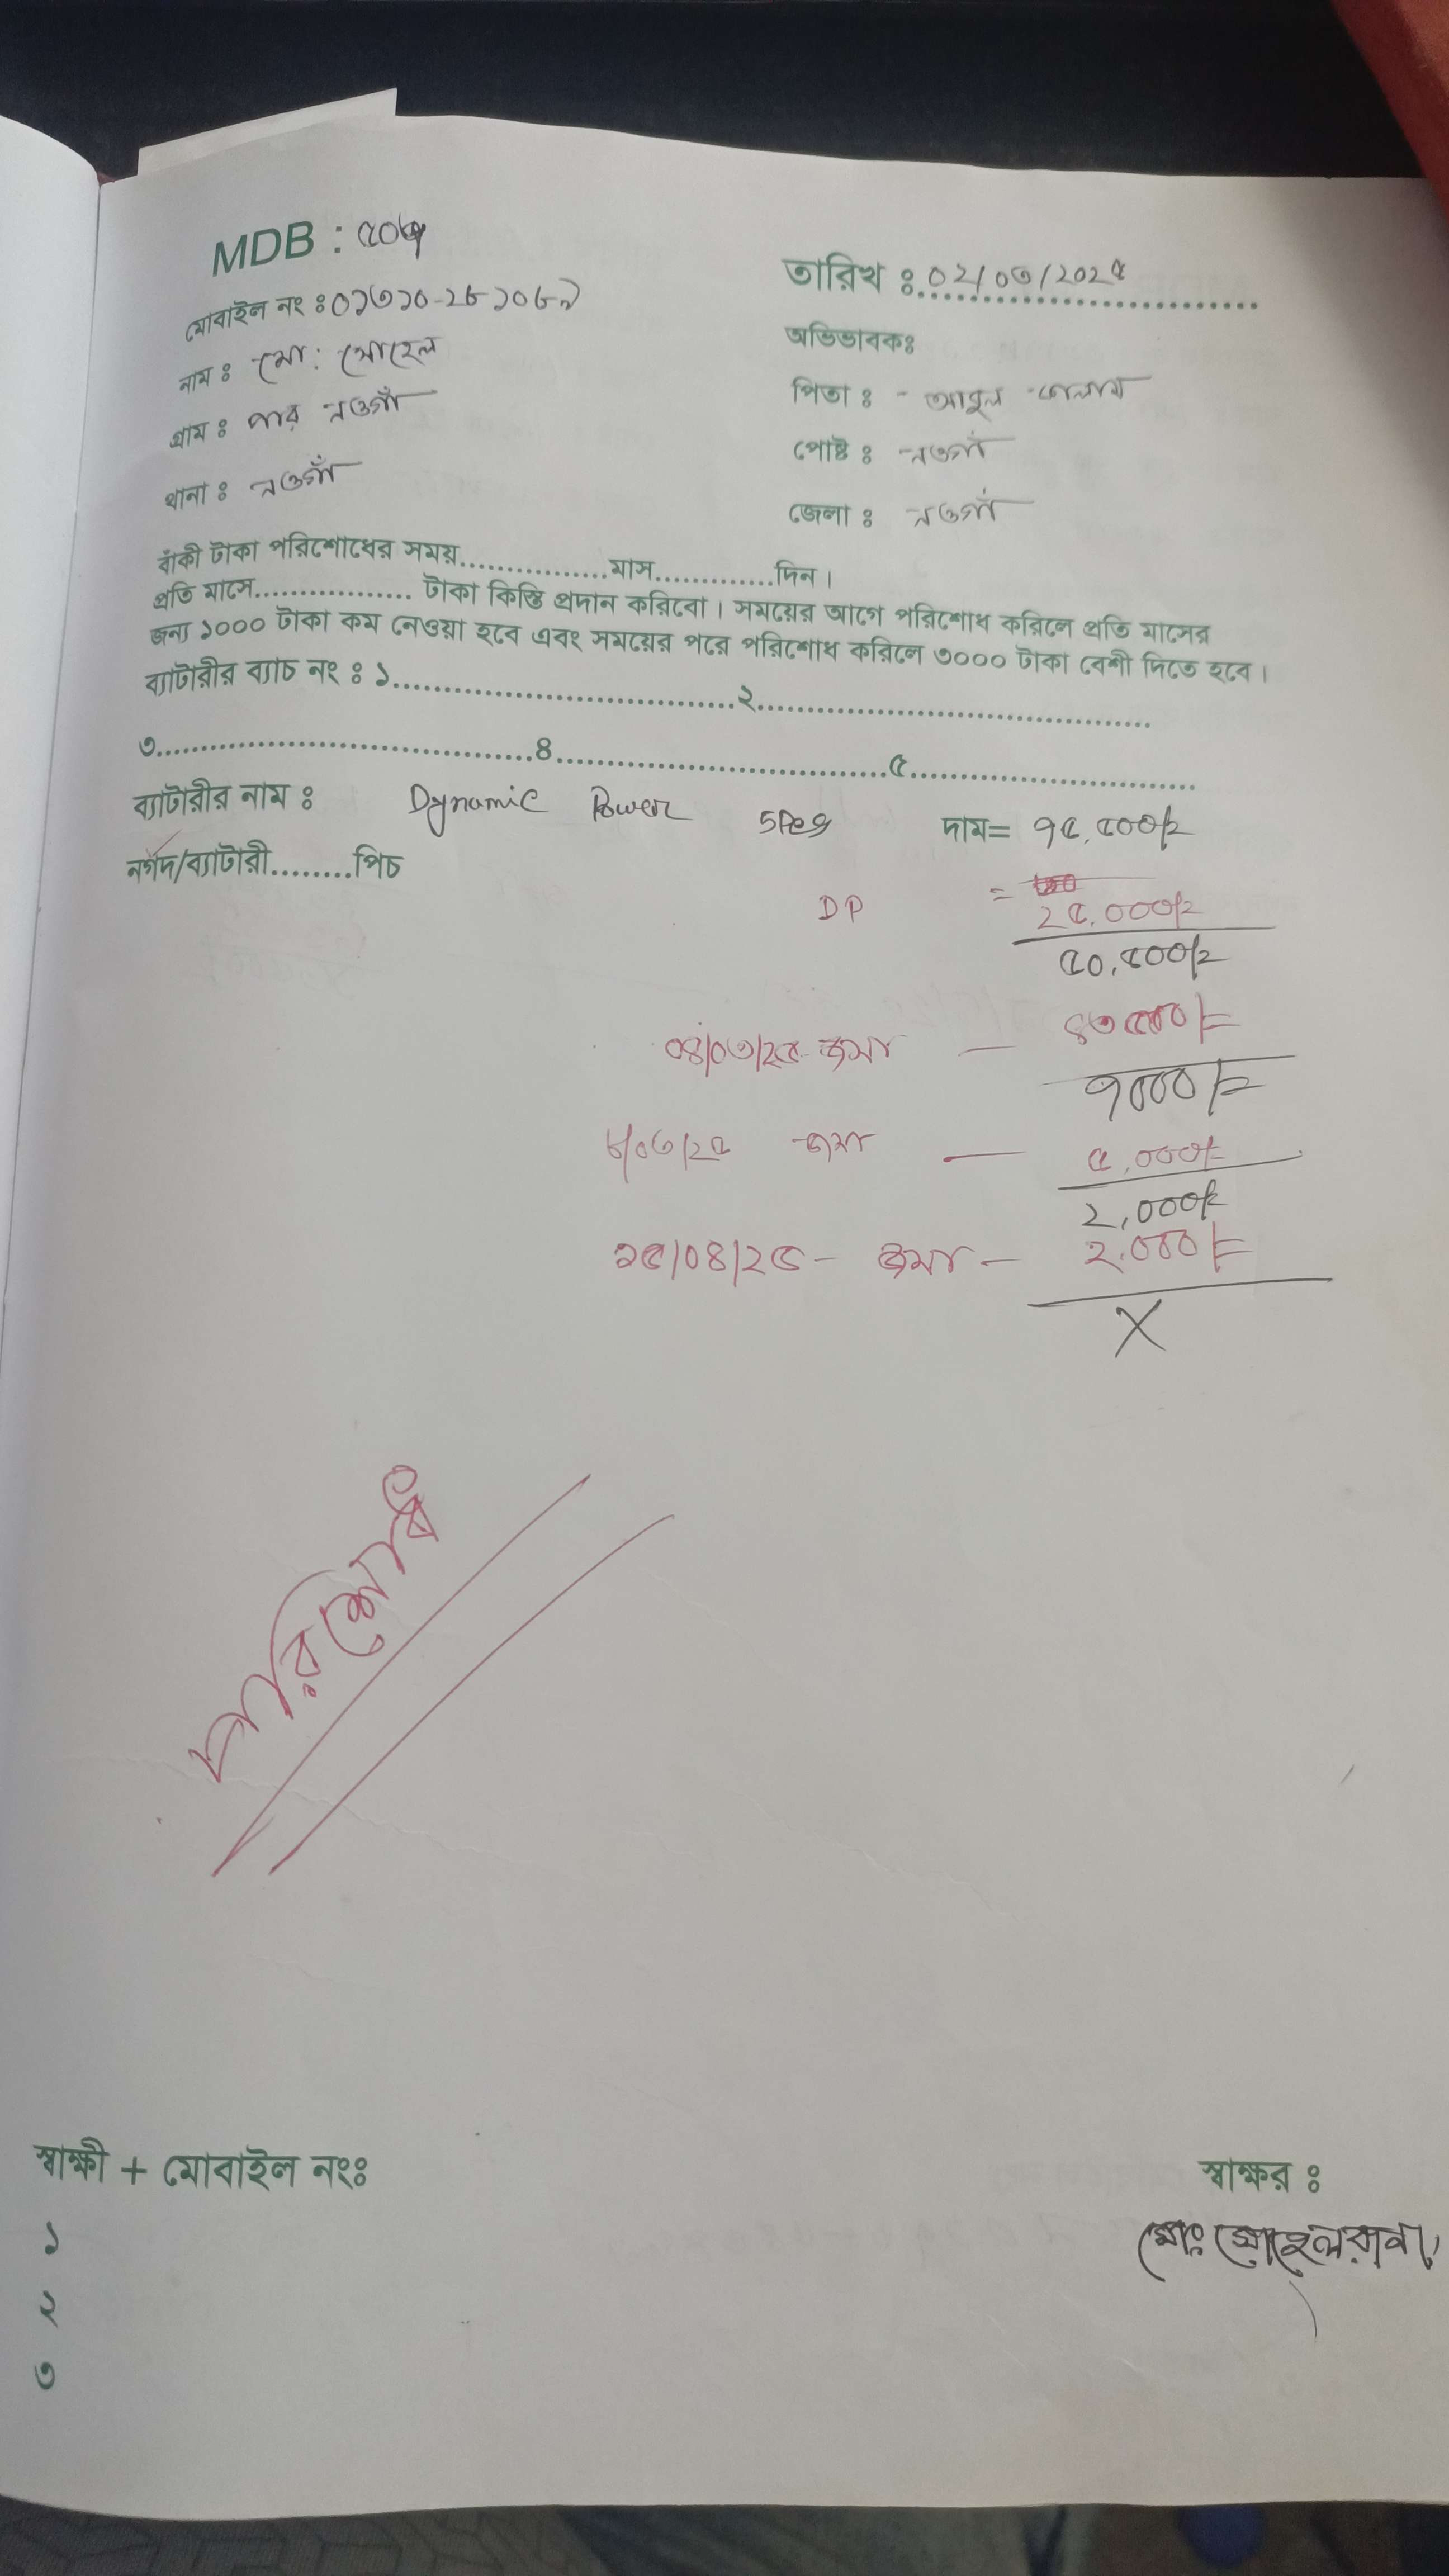 MDB : ৫০৬
তারিখ ঃ 02/০৩/202৫
মোবাইল নং ঃ 0১৩১০-2৮১০৮৯
অভিভাবকঃ
নাম ঃ মো: সোহেল
পিতা ঃ - আবুল কালাম
গ্রাম ঃ পার নওগাঁ
পোষ্ট ঃ নওগাঁ
থানা ঃ নওগাঁ
জেলা ঃ নওগাঁ
বাঁকী টাকা পরিশোধের সময়................মাস.............দিন।
প্রতি মাসে................. টাকা কিস্তি প্রদান করিবো। সময়ের আগে পরিশোধ করিলে প্রতি মাসের
জন্য ১০০০ টাকা কম নেওয়া হবে এবং সময়ের পরে পরিশোধ করিলে ৩০০০ টাকা বেশী দিতে হবে।
ব্যাটারীর ব্যাচ নং ঃ ১.....................................২...........................................
৩.........................................৪....................................৫...............................
ব্যাটারীর নাম ঃ Dynamic Power 5Pes দাম= ৭৫,৫০০/=
নগদ/ব্যাটারী.........পিচ
DP = 2৫,০০০/=
৫০,৫০০/=
০৪/০৩/২৫ জমা — ৪৩৫০০/=
৭০০০/=
৮/০৩/২৫ জমা — ৫,০০০/=
2,০০০/=
২৫/০৪/২৫ - জমা — ২,০০০/=
X
পরিশোধ
স্বাক্ষী + মোবাইল নংঃ
স্বাক্ষর ঃ
১
মোঃ সোহেল রানা
২
৩